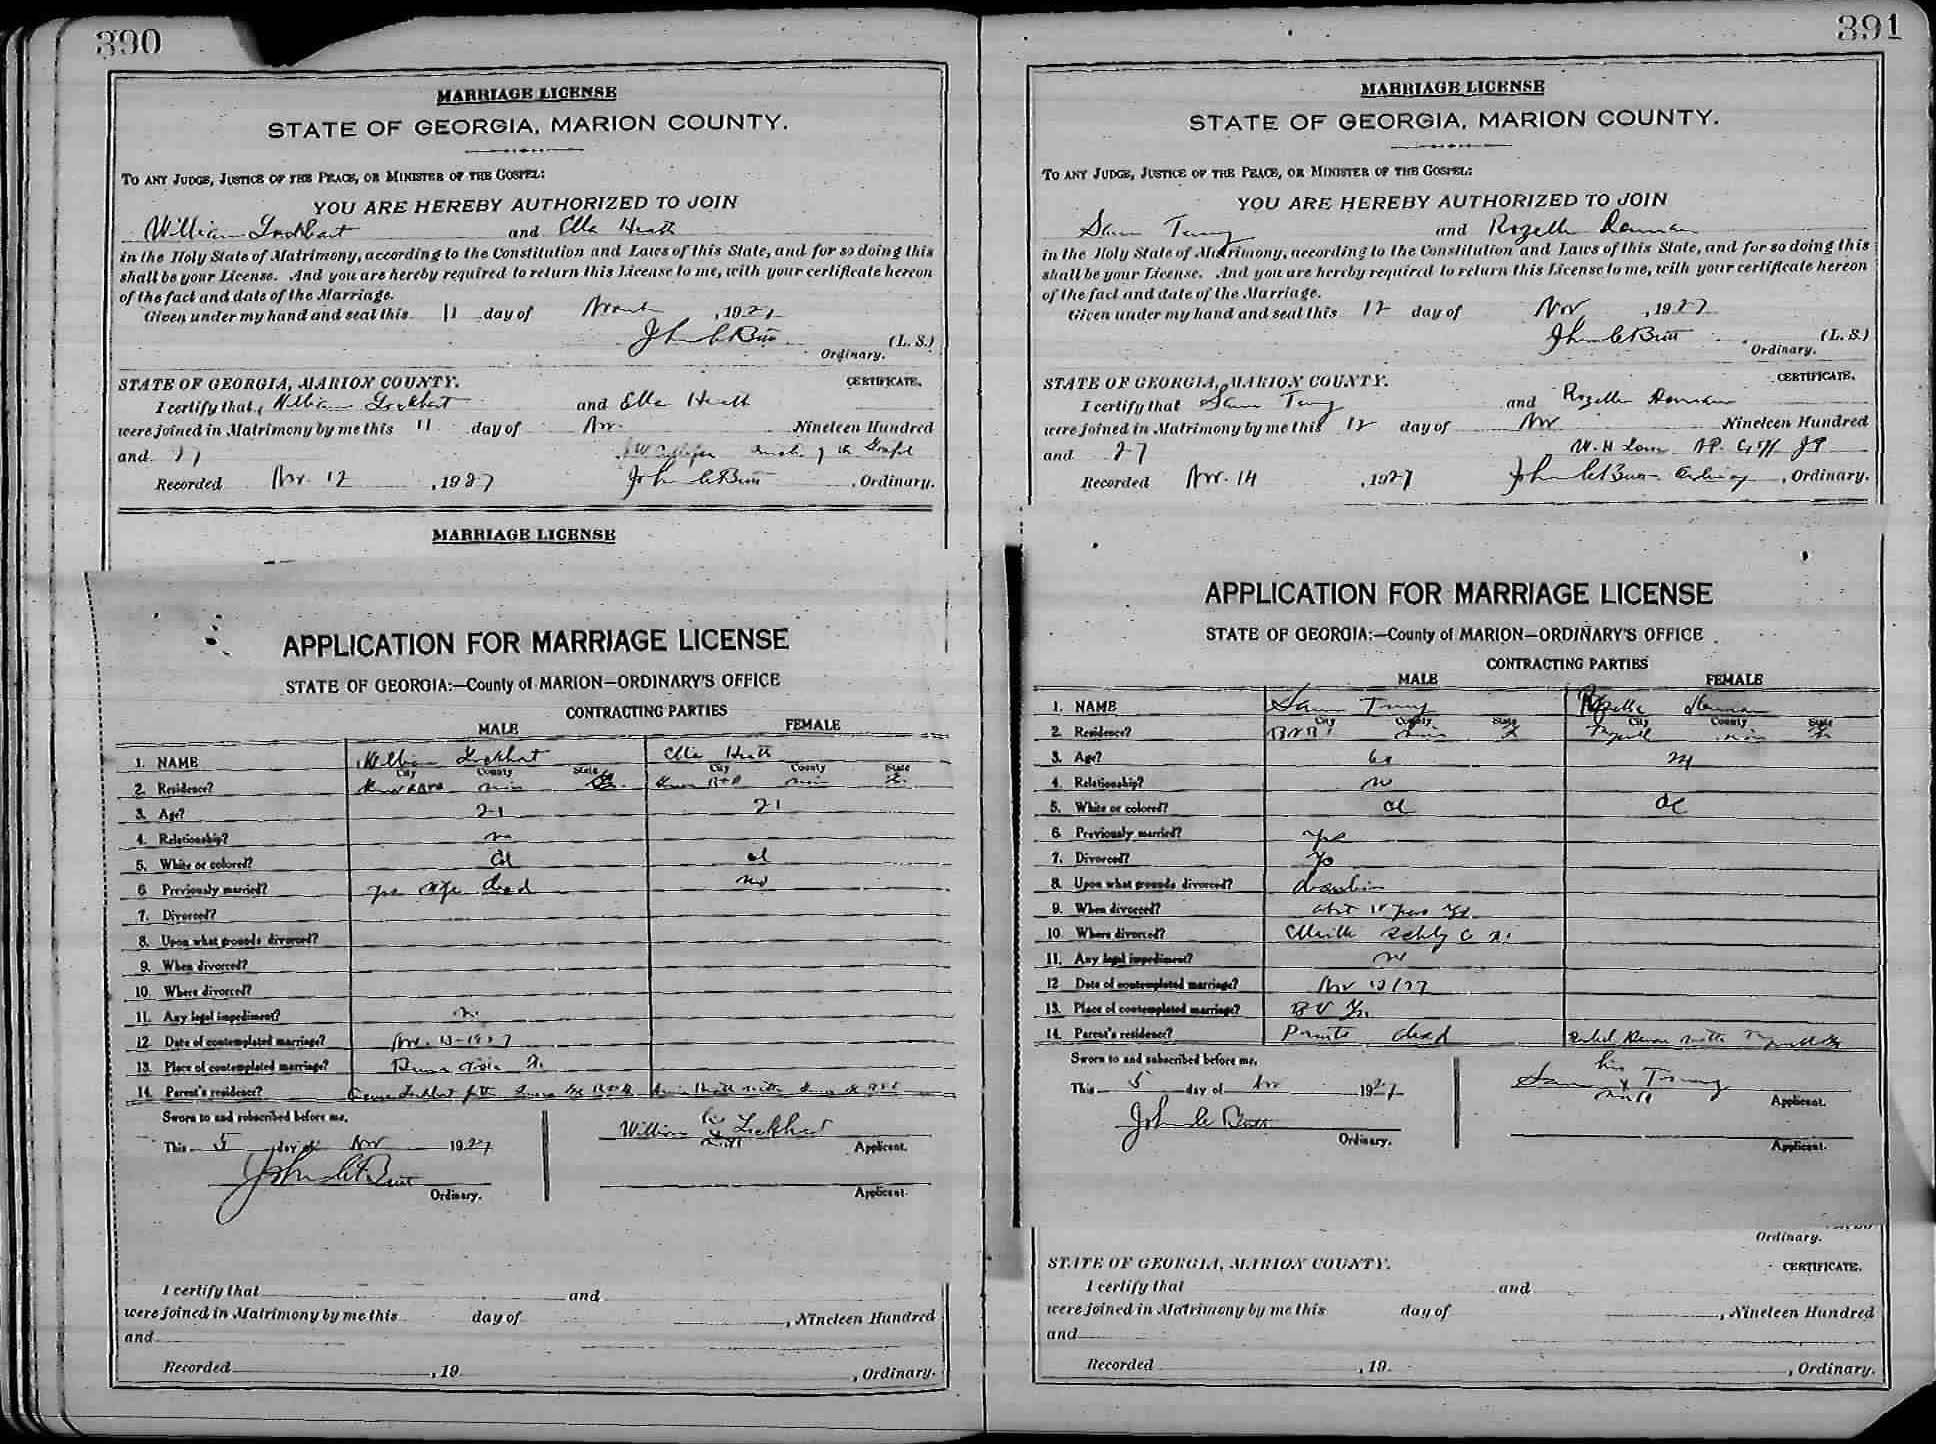 390
MARRIAGE LICENSE
STATE OF GEORGIA, MARION COUNTY.
TO ANY JUDGE, JUSTICE OF THE PEACE, OR MINISTER OF THE GOSPEL:
YOU ARE HEREBY AUTHORIZED TO JOIN
William Lockhart and Ella Heath
in the Holy State of Matrimony, according to the Constitution and Laws of this State, and for so doing this
shall be your License. And you are hereby required to return this License to me, with your certificate hereon
of the fact and date of the Marriage.
Given under my hand and seal this 11 day of , 1927
John C Butt (L. S.)
Ordinary.
STATE OF GEORGIA, MARION COUNTY. CERTIFICATE.
I certify that William Lockhart and Ella Heath
were joined in Matrimony by me this 11 day of Nov. Nineteen Hundred
and 27
Recorded Nov. 12 , 1927 John C Butt , Ordinary.
MARRIAGE LICENSE
APPLICATION FOR MARRIAGE LICENSE
STATE OF GEORGIA:—County of MARION—ORDINARY'S OFFICE
CONTRACTING PARTIES
MALE FEMALE
1. NAME William Lockhart Ella Heath
City County State City County State
2. Residence?
3. Age? 21 21
4. Relationship? no
5. White or colored? Col col
6 Previously married? yes wife dead no
7. Divorced?
8. Upon what grounds divorced?
9. When divorced?
10. Where divorced?
11. Any legal impediment? no
12 Date of contemplated marriage? Nov.
13. Place of contemplated marriage? Buena Vista Ga.
14. Parent's residence?
Sworn to and subscribed before me,
This 5 day of Nov 1927
William his x mark Lockhart
Applicant.
John C Butt
Ordinary.
Applicant.
I certify that and
were joined in Matrimony by me this day of , Nineteen Hundred
and
Recorded , 19 , Ordinary.
391
MARRIAGE LICENSE
STATE OF GEORGIA, MARION COUNTY.
TO ANY JUDGE, JUSTICE OF THE PEACE, OR MINISTER OF THE GOSPEL:
YOU ARE HEREBY AUTHORIZED TO JOIN
Sam and Rozella
in the Holy State of Matrimony, according to the Constitution and Laws of this State, and for so doing this
shall be your License. And you are hereby required to return this License to me, with your certificate hereon
of the fact and date of the Marriage.
Given under my hand and seal this 12 day of Nov , 1927
John C Butt (L. S.)
Ordinary.
STATE OF GEORGIA, MARION COUNTY. CERTIFICATE.
I certify that Sam and Rozella
were joined in Matrimony by me this 12 day of Nov Nineteen Hundred
and 27
Recorded Nov. 14 , 1927 John C Butt Ordinary , Ordinary.
APPLICATION FOR MARRIAGE LICENSE
STATE OF GEORGIA:—County of MARION—ORDINARY'S OFFICE
CONTRACTING PARTIES
MALE FEMALE
1. NAME Sam Rozella
City County State City County State
2. Residence?
3. Age? 24
4. Relationship? no
5. White or colored? Col Col
6 Previously married? yes
7. Divorced? yes
8. Upon what grounds divorced?
9. When divorced?
10 Where divorced? Ellaville Schley Co Ga.
11. Any legal impediment? no
12 Date of contemplated marriage? Nov 12/27
13. Place of contemplated marriage? B V Ga.
14. Parent's residence? Parents dead
Sworn to and subscribed before me,
This 5 day of Nov 1927
Sam his x mark
Applicant.
John C Butt
Ordinary.
Applicant.
Ordinary.
STATE OF GEORGIA, MARION COUNTY. CERTIFICATE.
I certify that and
were joined in Matrimony by me this day of , Nineteen Hundred
and
Recorded , 19 , Ordinary.